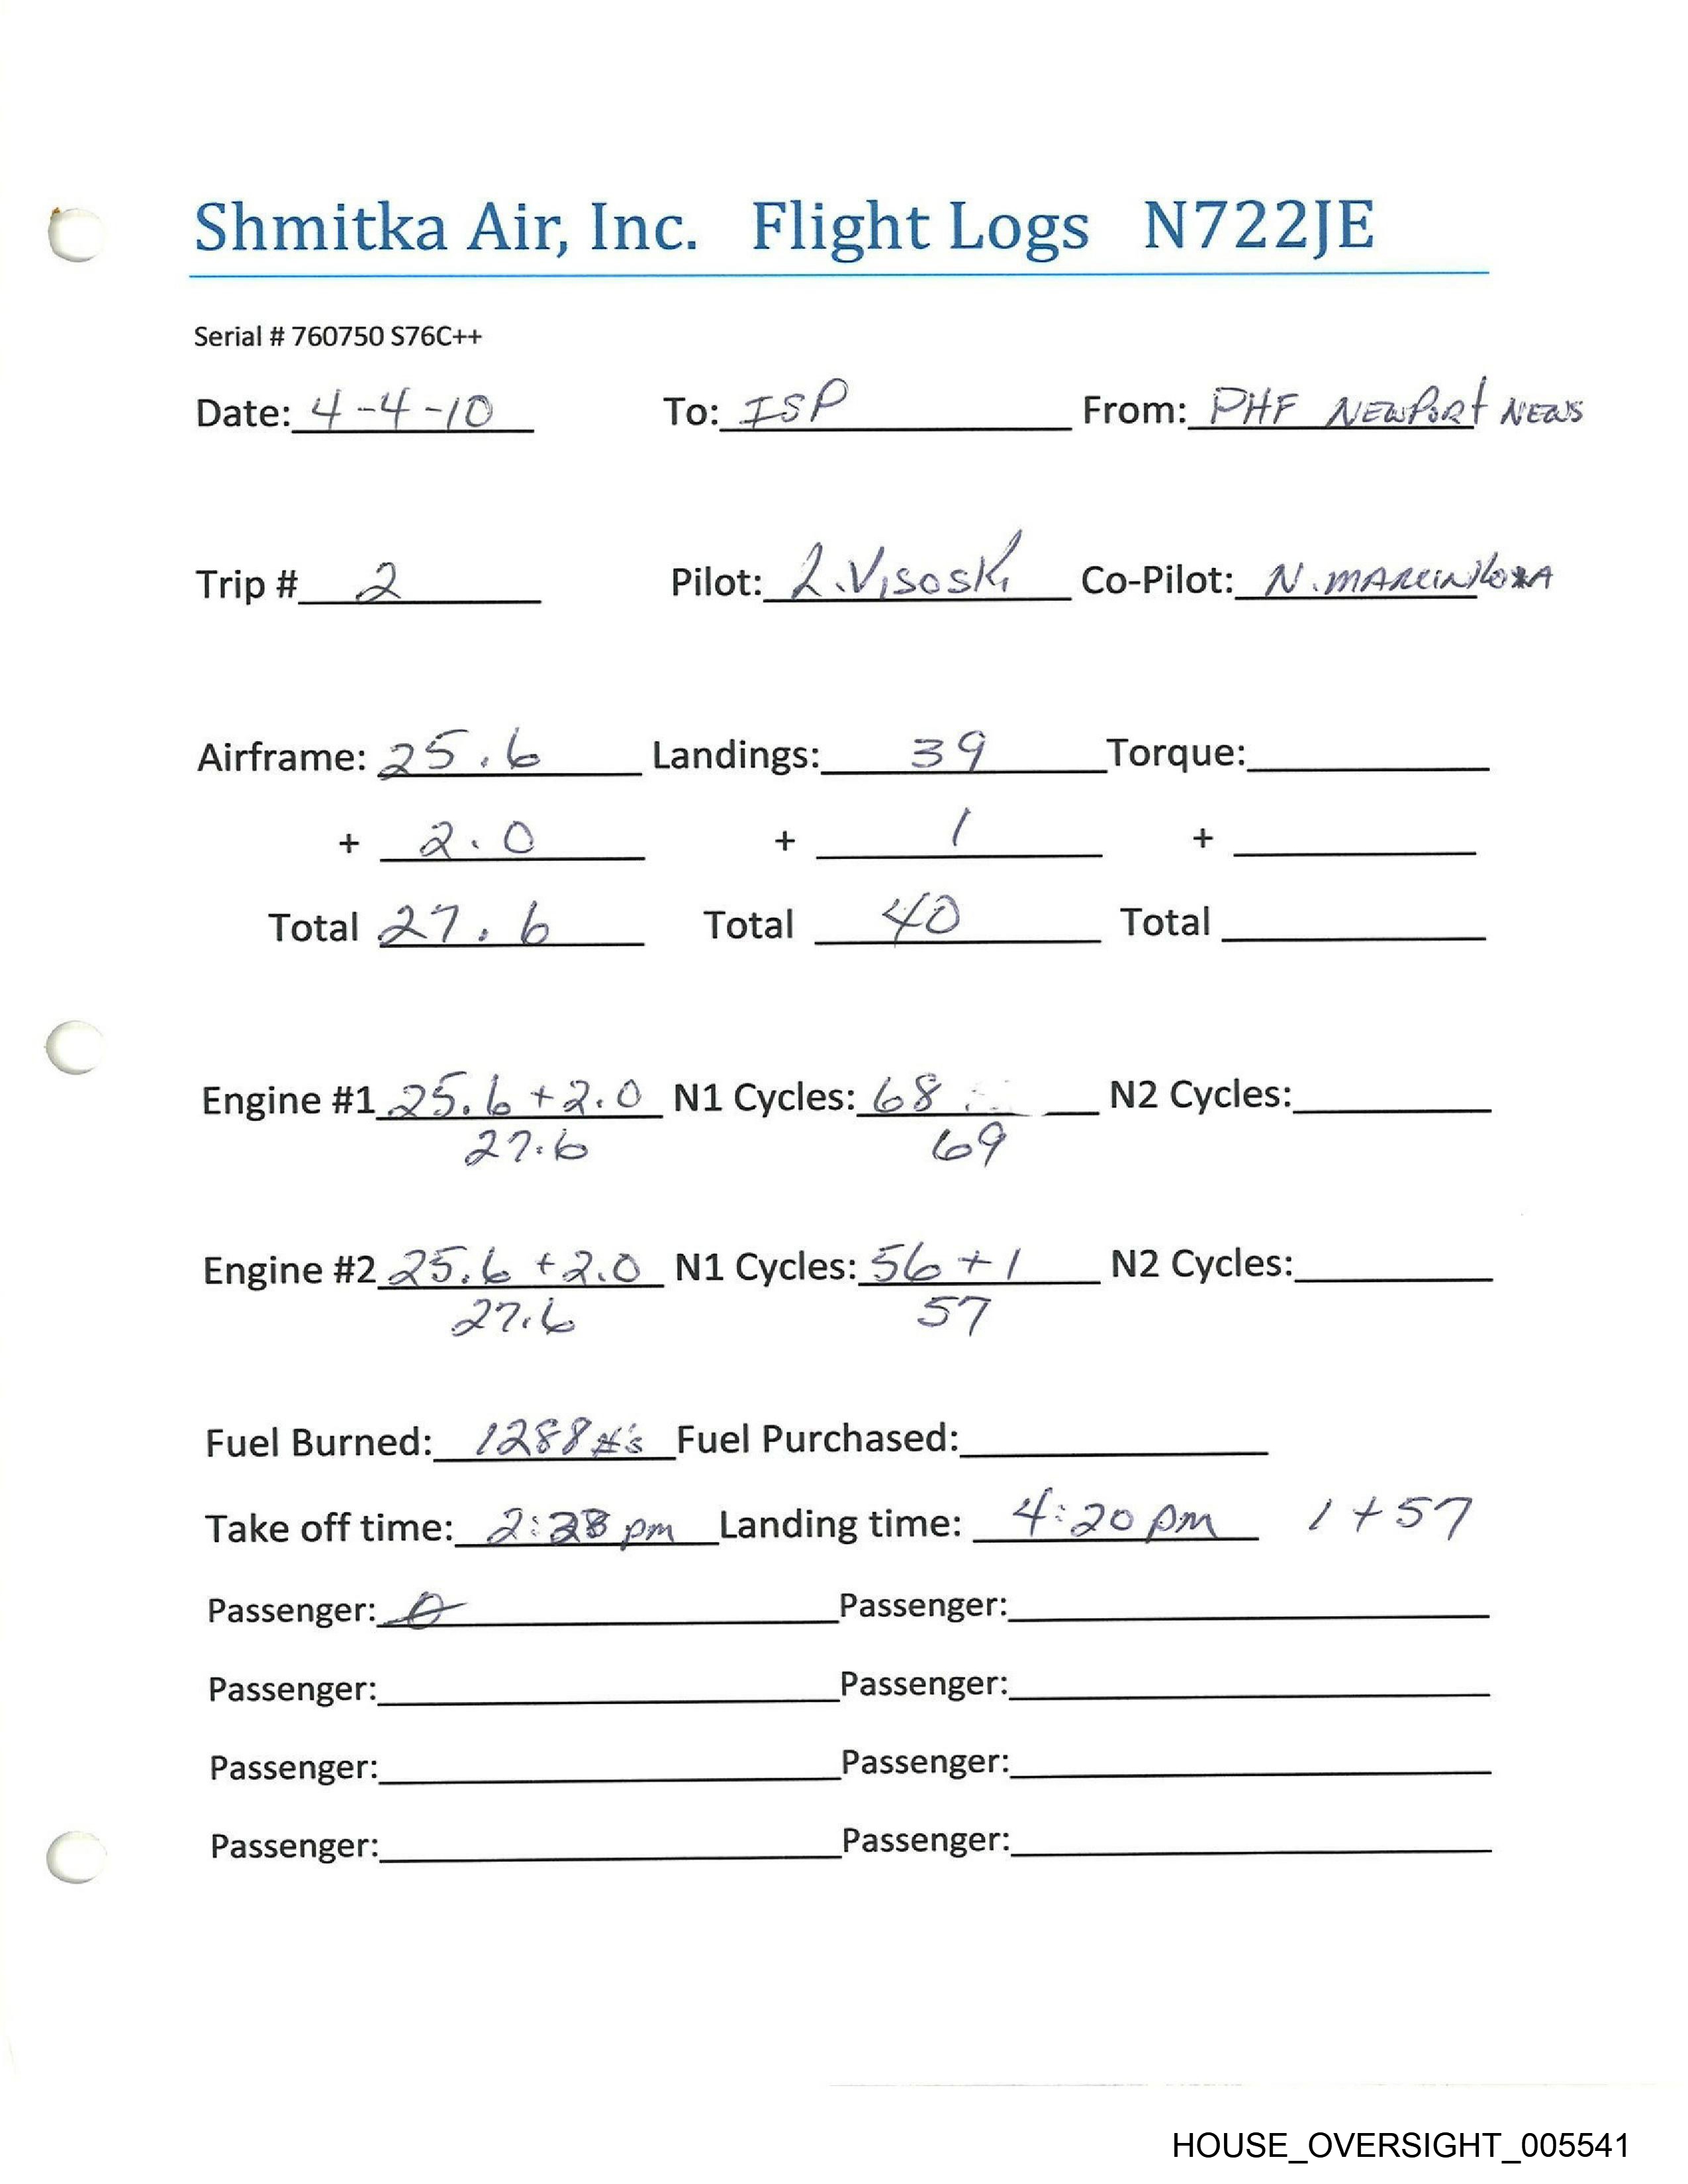 Shmitka Air, Inc. Flight Logs N722JE
Serial # 760750 S76C++
Date: 4-4-10 To: ISP From: PHF NEWPORT NEWS
Trip # 2 Pilot: L.VISOSKI Co-Pilot: N.
Airframe: 25.6 Landings: 39 Torque:
+ 2.0 + 1 +
Total 27.6 Total 40 Total
Engine #1 25.6 + 2.0 N1 Cycles: 68 N2 Cycles:
27.6 69
Engine #2 25.6 + 2.0 N1 Cycles: 56 + 1 N2 Cycles:
27.6 57
Fuel Burned: 1288 #'s Fuel Purchased:
Take off time: pm Landing time: 4:20 pm 1 + 57
Passenger: 0 Passenger:
Passenger: Passenger:
Passenger: Passenger:
Passenger: Passenger:
HOUSE_OVERSIGHT_005541